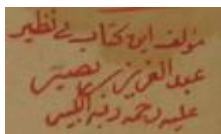 مؤلف این کتاب بے نظیر
عبد العزیز بن بصیر
علیہ رحمۃ ربہ الکبیر